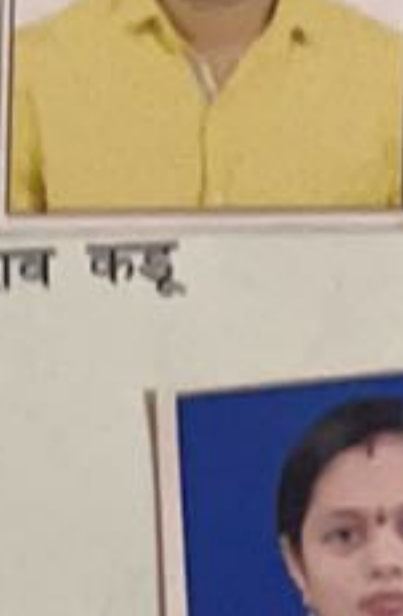 ाव कडू